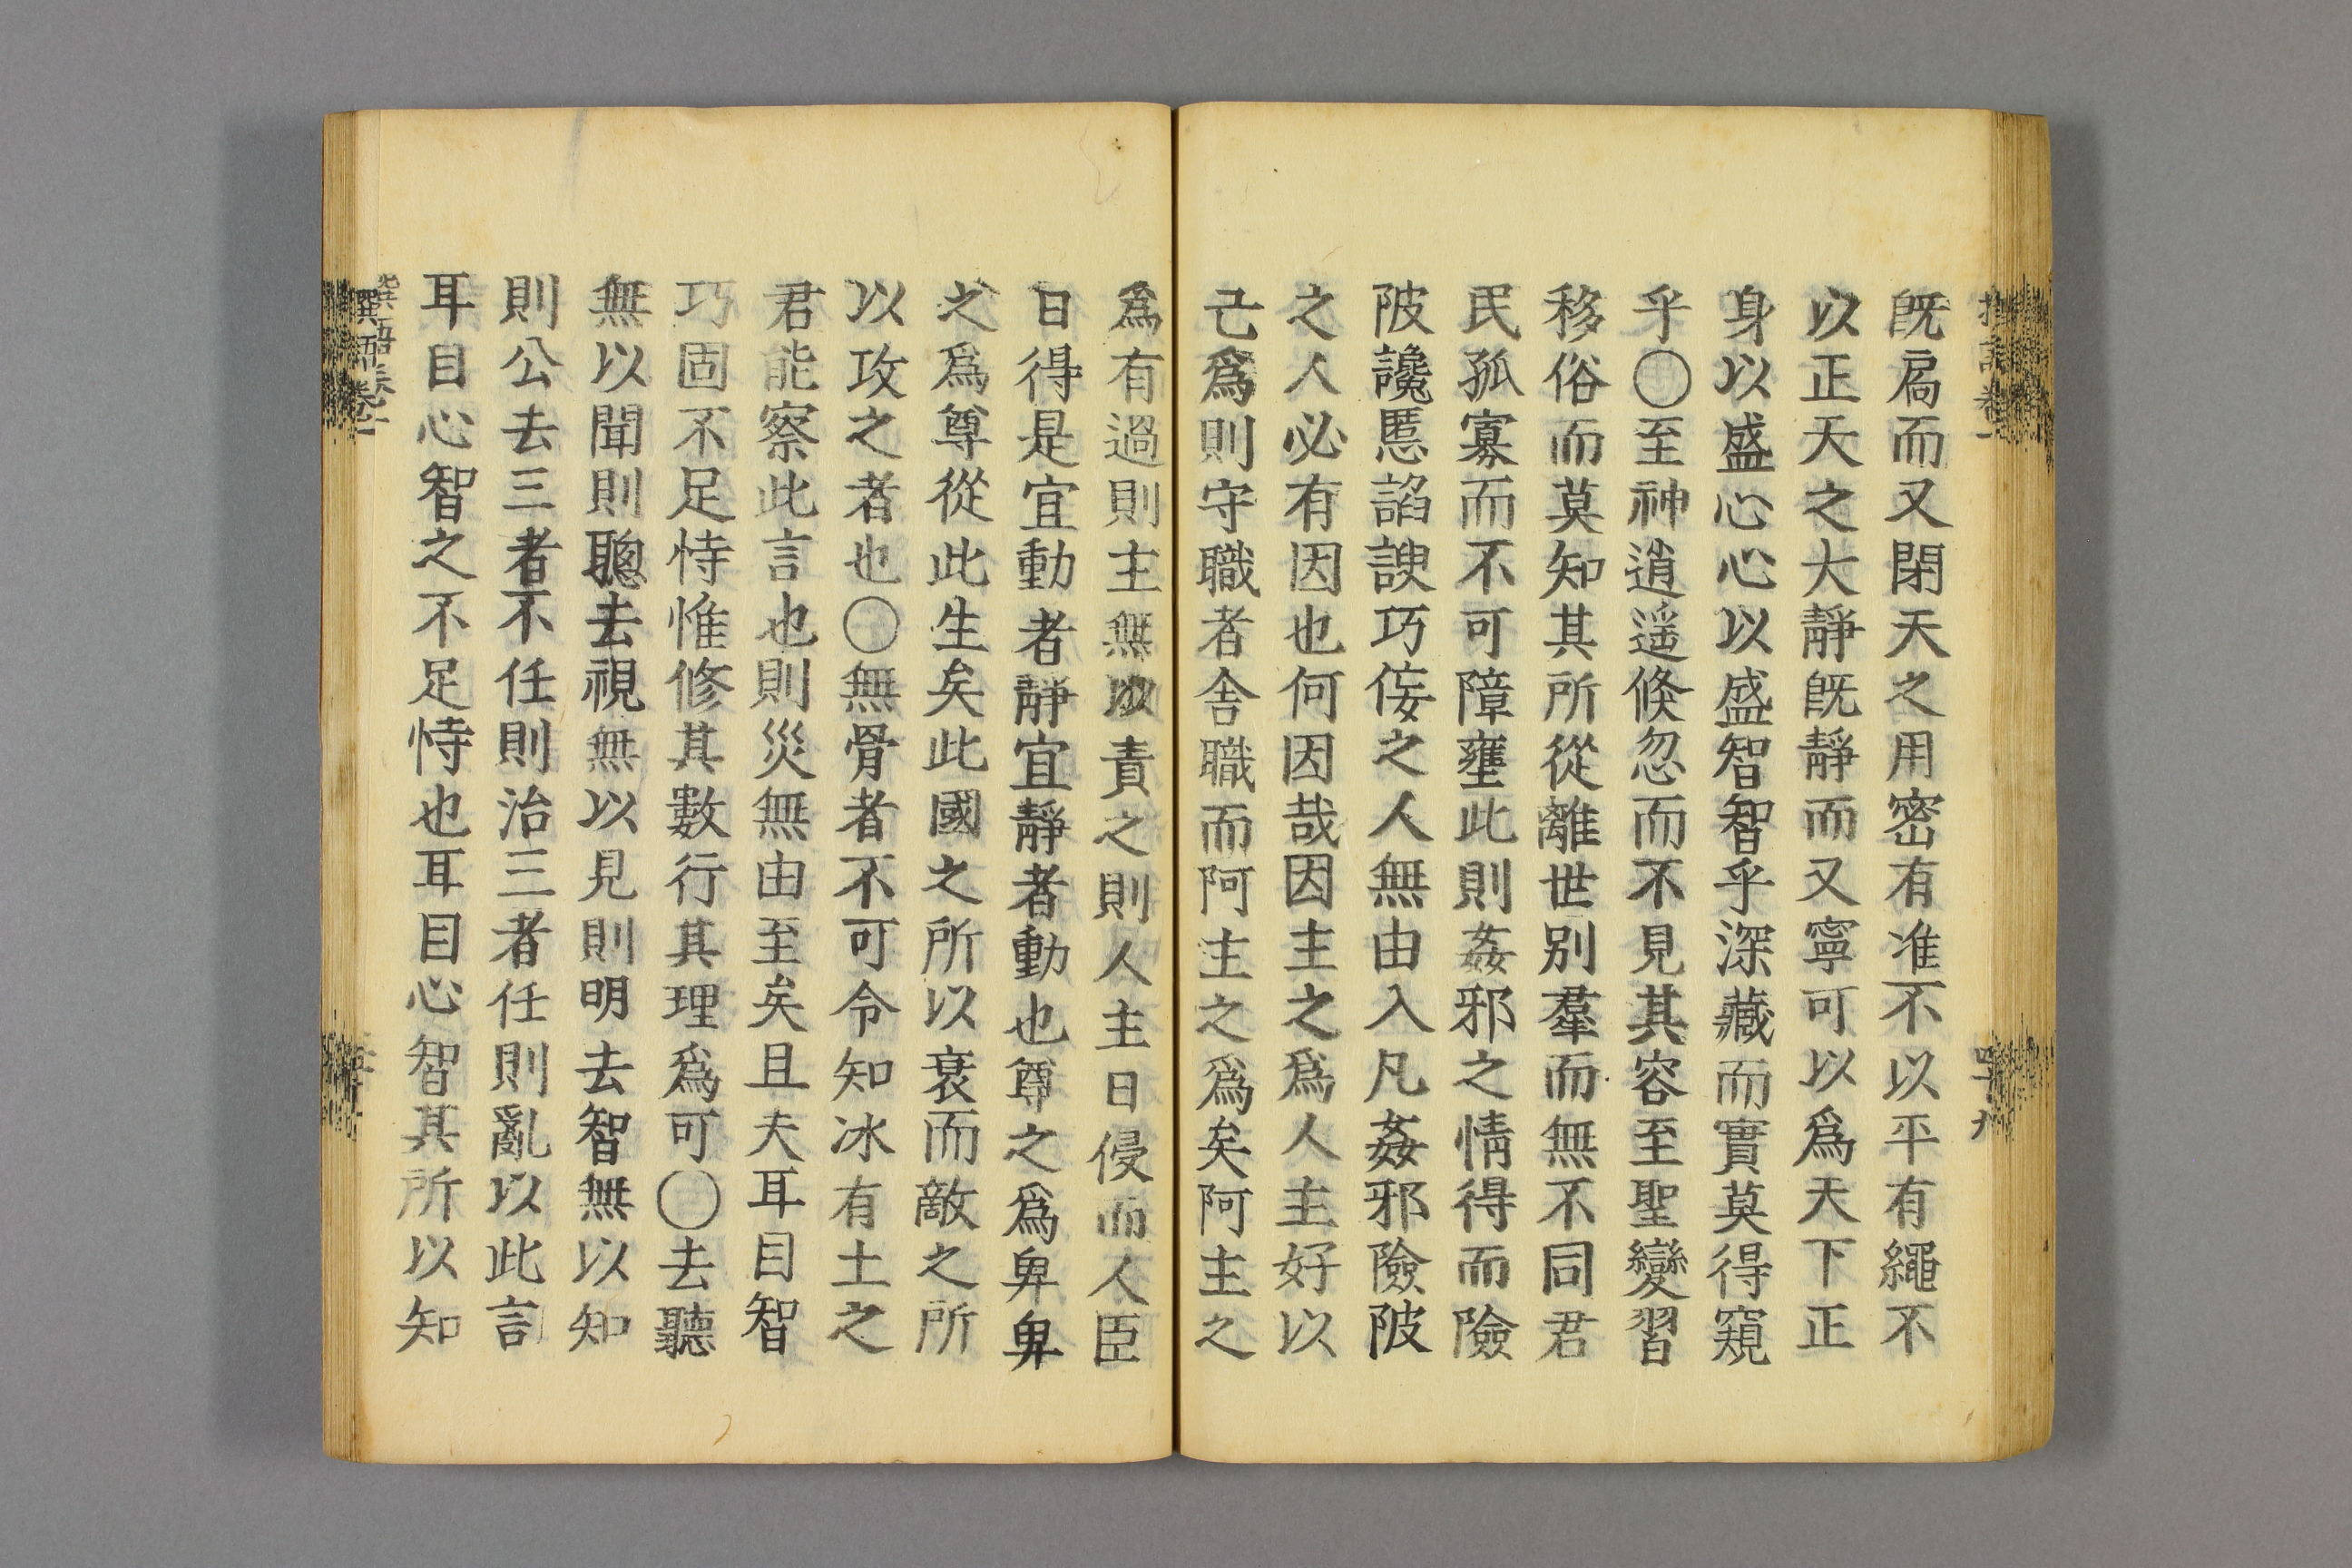 既扄而又閉天之用密有准不以平有繩不
以正天之大靜旣靜而又寧可以爲天下正
身以盛心心以盛智智乎深藏而實莫得窺
乎〇至神逍遥倐忽而不見其容至聖變習
移俗而莫知其所從離世别羣而無不同君
民孤寡而不可障壅此則姦邪之情得而險
陂讒慝諂諛巧佞之人無由入凡姦邪險陂
之人必有因也何因哉因主之爲人主好以
己爲則守職者舍職而阿主之爲矣阿主之
爲有過則主無以責之則人主日侵而人臣
日得是宜動者靜宜靜者動也尊之爲卑卑
之爲尊從此生矣此國之所以衰而敵之所
以攻之者也〇無骨者不可令知冰有土之
君能察此言也則災無由至矣且夫耳目智
巧固不足恃惟修其數行其理爲可〇去聽
無以聞則聰去視無以見則明去智無以知
則公去三者不任則治三者任則亂以此言
耳目心智之不足恃也耳目心智其所以知
卷一
四十九